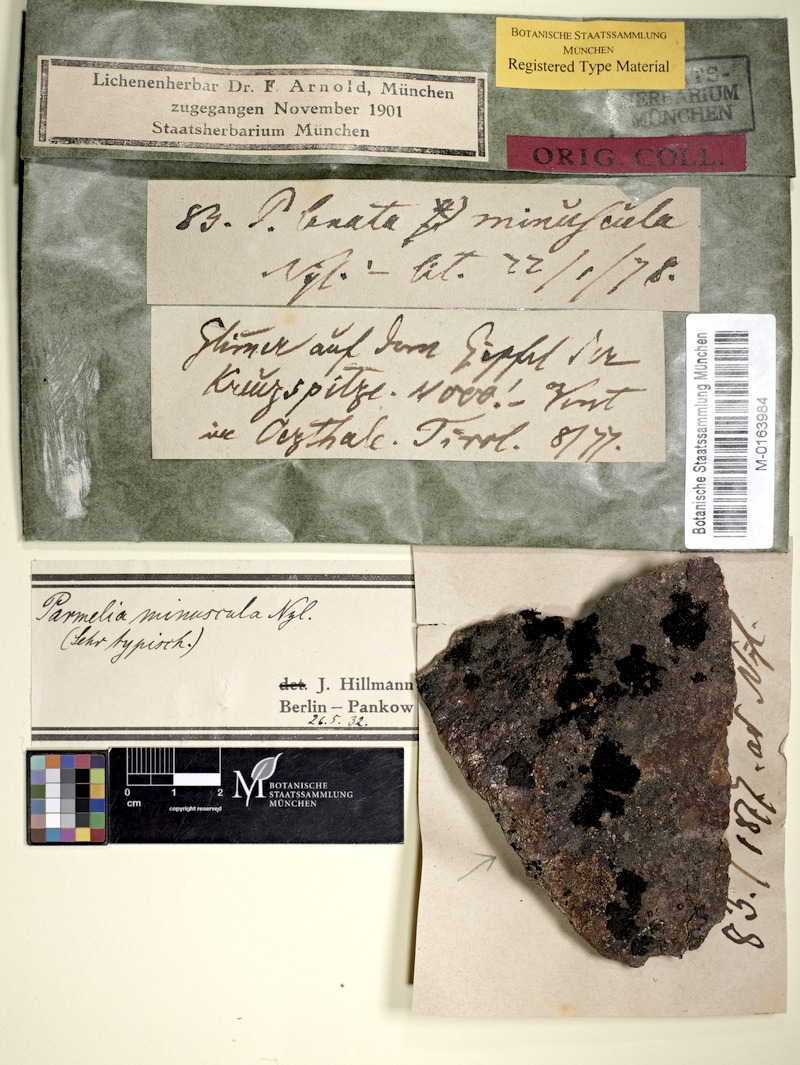 BOTANISCHE STAATSSAMMLUNG
MÜNCHEN
Registered Type Material
Lichenenherbar Dr. F. Arnold, München
zugegangen November 1901
Staatsherbarium München
HERBARIUM
MÜNCHEN
ORIG. COLL.
83. P. lanata minuscula
Nyl. - lit. 22/1/78.
Glimer auf dem Gipfel der
Kreuzspitze. - Vent
im Oezthale. Tirol. 8/77.
Botanische Staatssammlung München
M-0163984
Parmelia minuscula Nyl.
(Sehr typisch.)
det. J. Hillmann
Berlin – Pankow
26.5.32.
0 1 2
cm
copyright reserved
M BOTANISCHE
STAATSSAMMLUNG
MÜNCHEN
83. / 1877. ad Nyl.